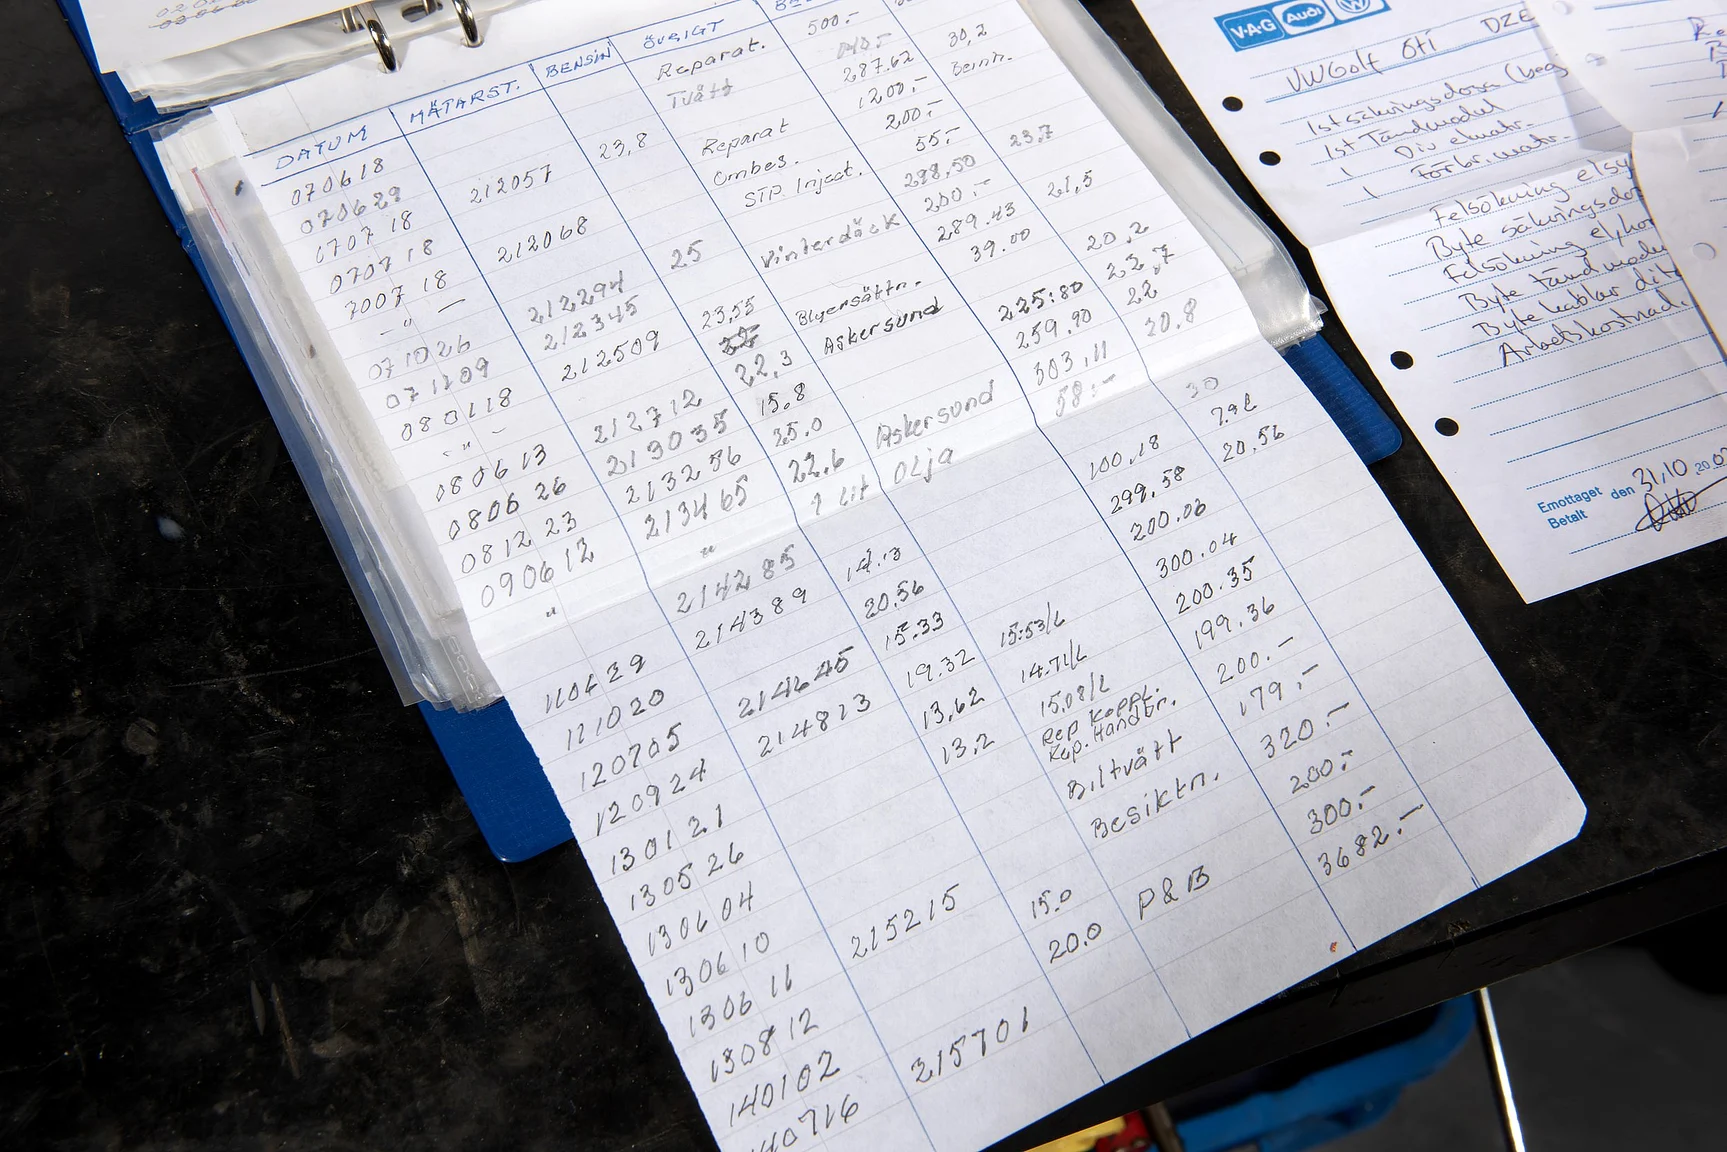 DATUM
070618
070629
1707 18
070718
7007 18
-"-
071026
071109
080118
-"-
080613
080626
0812 23
090612
"
111020
120705
120924
130121
130526
130604
130610
130611
130812
140102
140716
MÄTARST.
212057
212068
212294
212345
212509
212712
213035
213256
213465
"
214285
214389
214645
214813
215215
215701
BENSIN
23,8
25
23,55
22,3
15,8
25.0
22,6
1 lit olja
20,56
15.33
19.32
13,62
13,2
15.0
20.0
ÖVRIGT
Reparat.
Tvätt
Reparat
Ombes.
STP Inject.
Vinterdäck
Blyersättn.
Askersund
Askersund
15:53/L
14.71/L
15,08/L
Rep Koppl.
Rep. Handbr.
Biltvätt
Besiktn.
P&B
500.-
287.62
1200.-
200.-
55:-
298,50
200.-
289.43
39.00
225:80
259.90
303,11
58:-
100,18
299,58
200.06
300.04
200.35
199.36
200.-
179,-
320.-
200:-
300.-
3682.-
30,2
Bernh.
23,7
21,5
20,2
22,7
22
20.8
30
20,56
V·A·G Audi
VW Golf GTi DZE
1st säkringsdosa (beg
1st Tändmodul
Div elmatr.
1 Förbr.matr.
Felsökning elsy
Byte säkringsdos
Felsökning el,hor
Byte tändmodu
Byte kablar dit
Arbetskostnad.
Emottaget den 31/10 20
Betalt